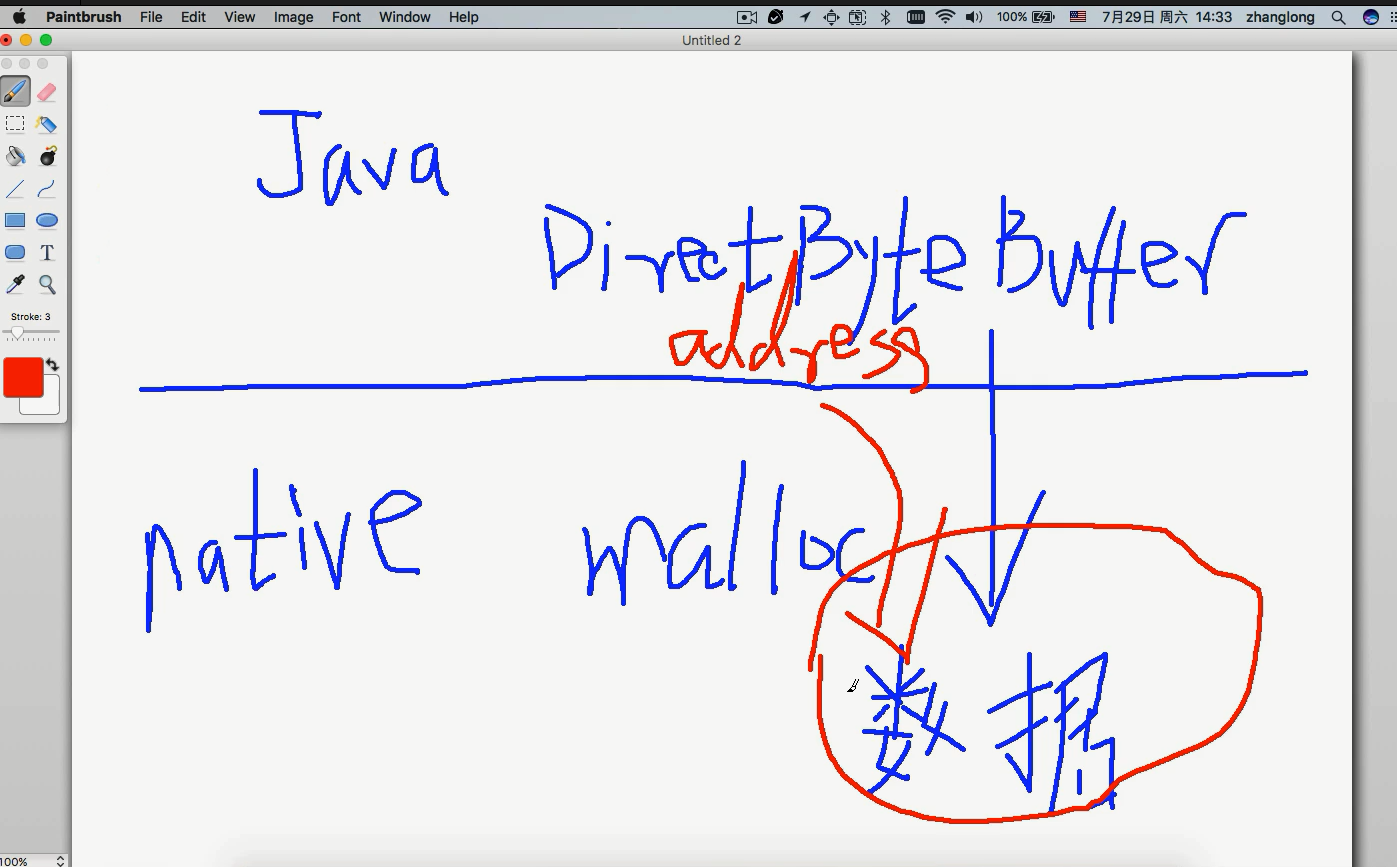 Paintbrush File Edit View Image Font Window Help 100% 7月29日 周六 14:33 zhanglong
Untitled 2
Java
DirectByteBuffer
address
native malloc
数据
T
Stroke: 3
100%